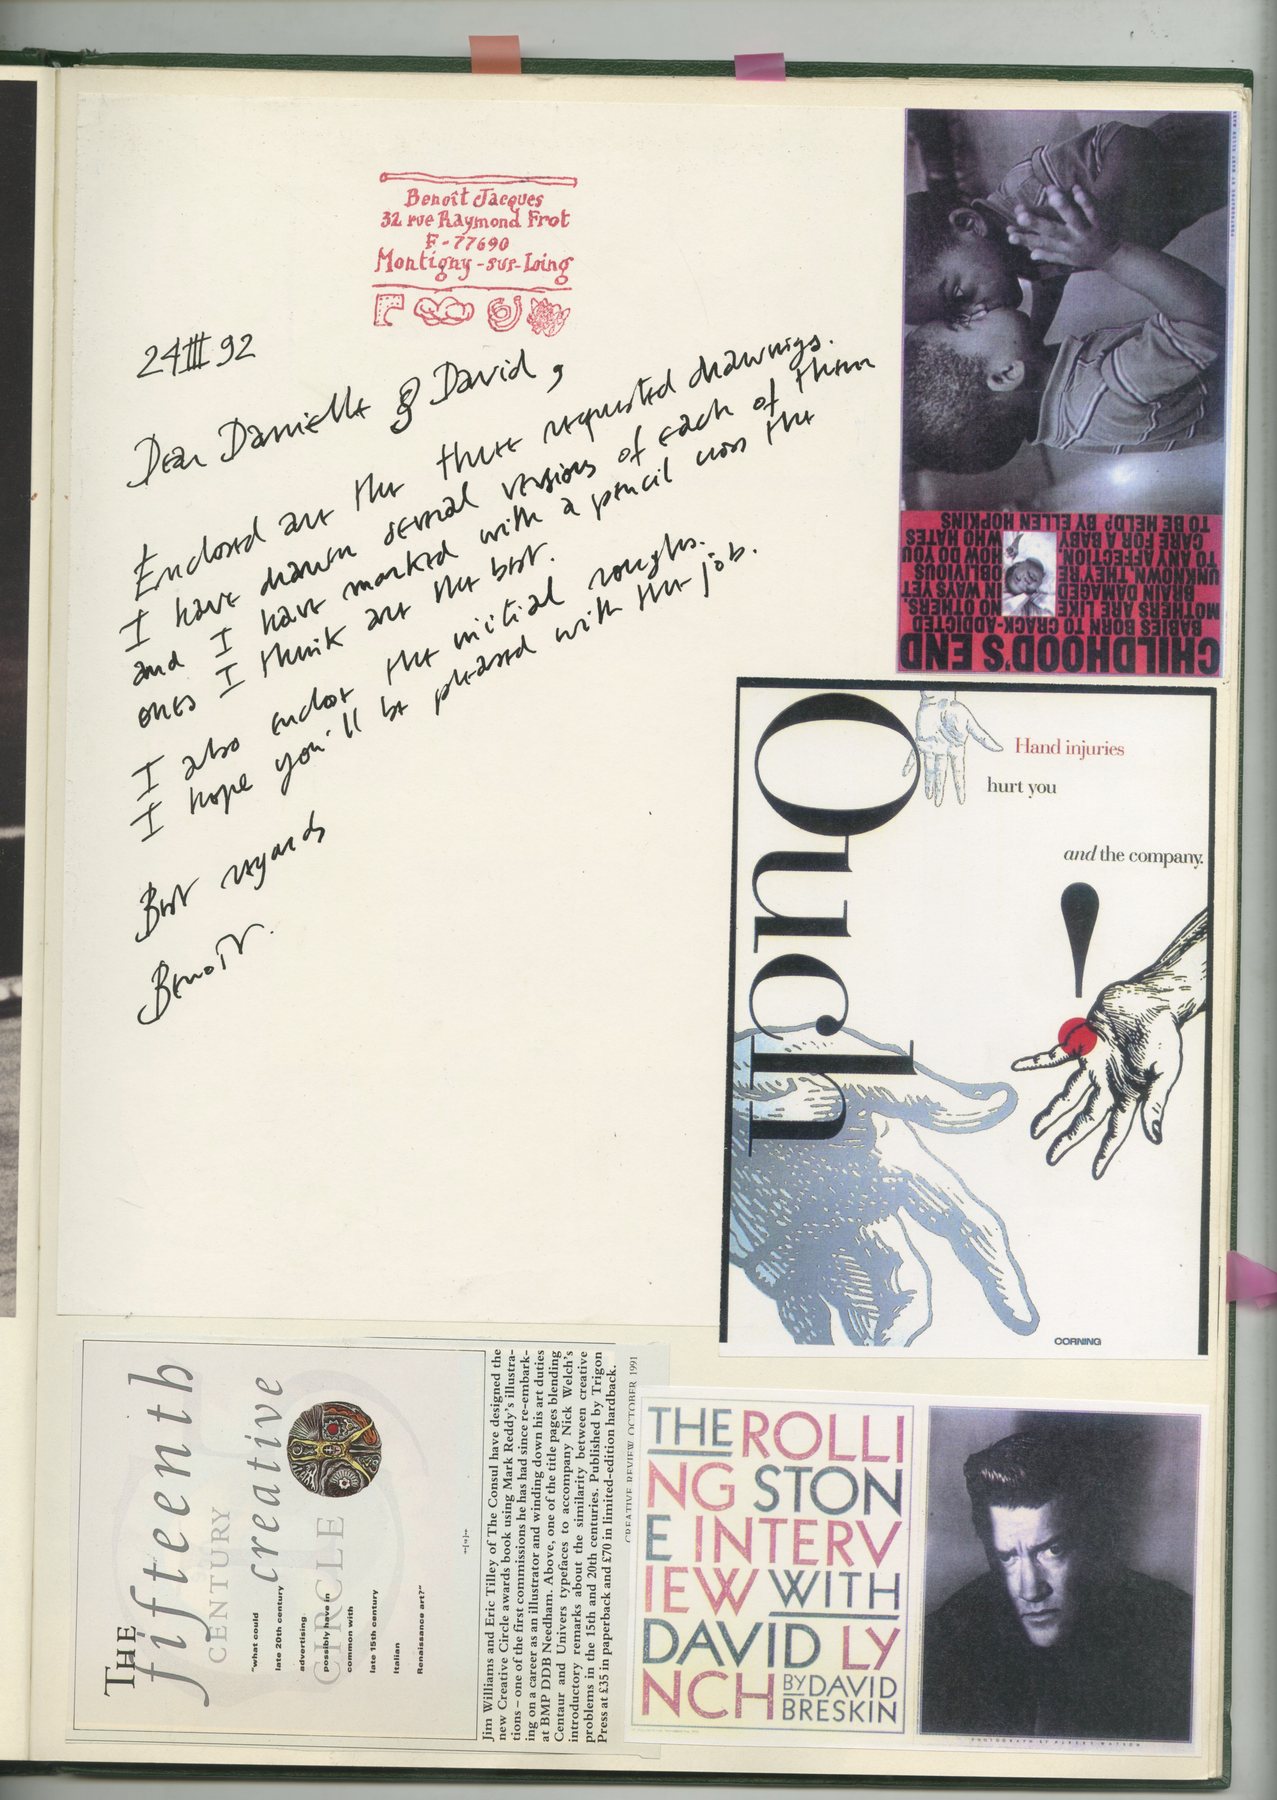 Benoît Jacques
32 rue Raymond Frot
F-77690
Montigny-sur-Loing
24 III 92
Dear Danielle & David,
Enclosed are the three requested drawings.
I have drawn several versions of each of them
and I have marked with a pencil cross the
ones I think are the best.
I also enclose the initial roughs.
I hope you'll be pleased with the job.
Best regards
Benoît.
CHILDHOOD'S END
BABIES BORN TO CRACK-ADDICTED
MOTHERS ARE LIKE NO OTHERS.
BRAIN DAMAGED IN WAYS YET
UNKNOWN, THEY'RE OBLIVIOUS
TO ANY AFFECTION. HOW DO YOU
CARE FOR A BABY WHO HATES
TO BE HELD? BY ELLEN HOPKINS
Ouch
!
Hand injuries
hurt you
and the company.
CORNING
THE
fifteenth
CENTURY
creative
CIRCLE
"what could
late 20th century
advertising
possibly have in
common with
late 15th century
Italian
Renaissance art?"
Jim Williams and Eric Tilley of The Consul have designed the
new Creative Circle awards book using Mark Reddy's illustra-
tions – one of the first commissions he has had since re-embark-
ing on a career as an illustrator and winding down his art duties
at BMP DDB Needham. Above, one of the title pages blending
Centaur and Univers typefaces to accompany Nick Welch's
introductory remarks about the similarity between creative
problems in the 15th and 20th centuries. Published by Trigon
Press at £35 in paperback and £70 in limited-edition hardback.
CREATIVE REVIEW OCTOBER 1991
THE ROLLI
NG STON
E INTERV
IEW WITH
DAVID LY
NCH BY DAVID
BRESKIN
PHOTOGRAPH BY ALBERT WATSON